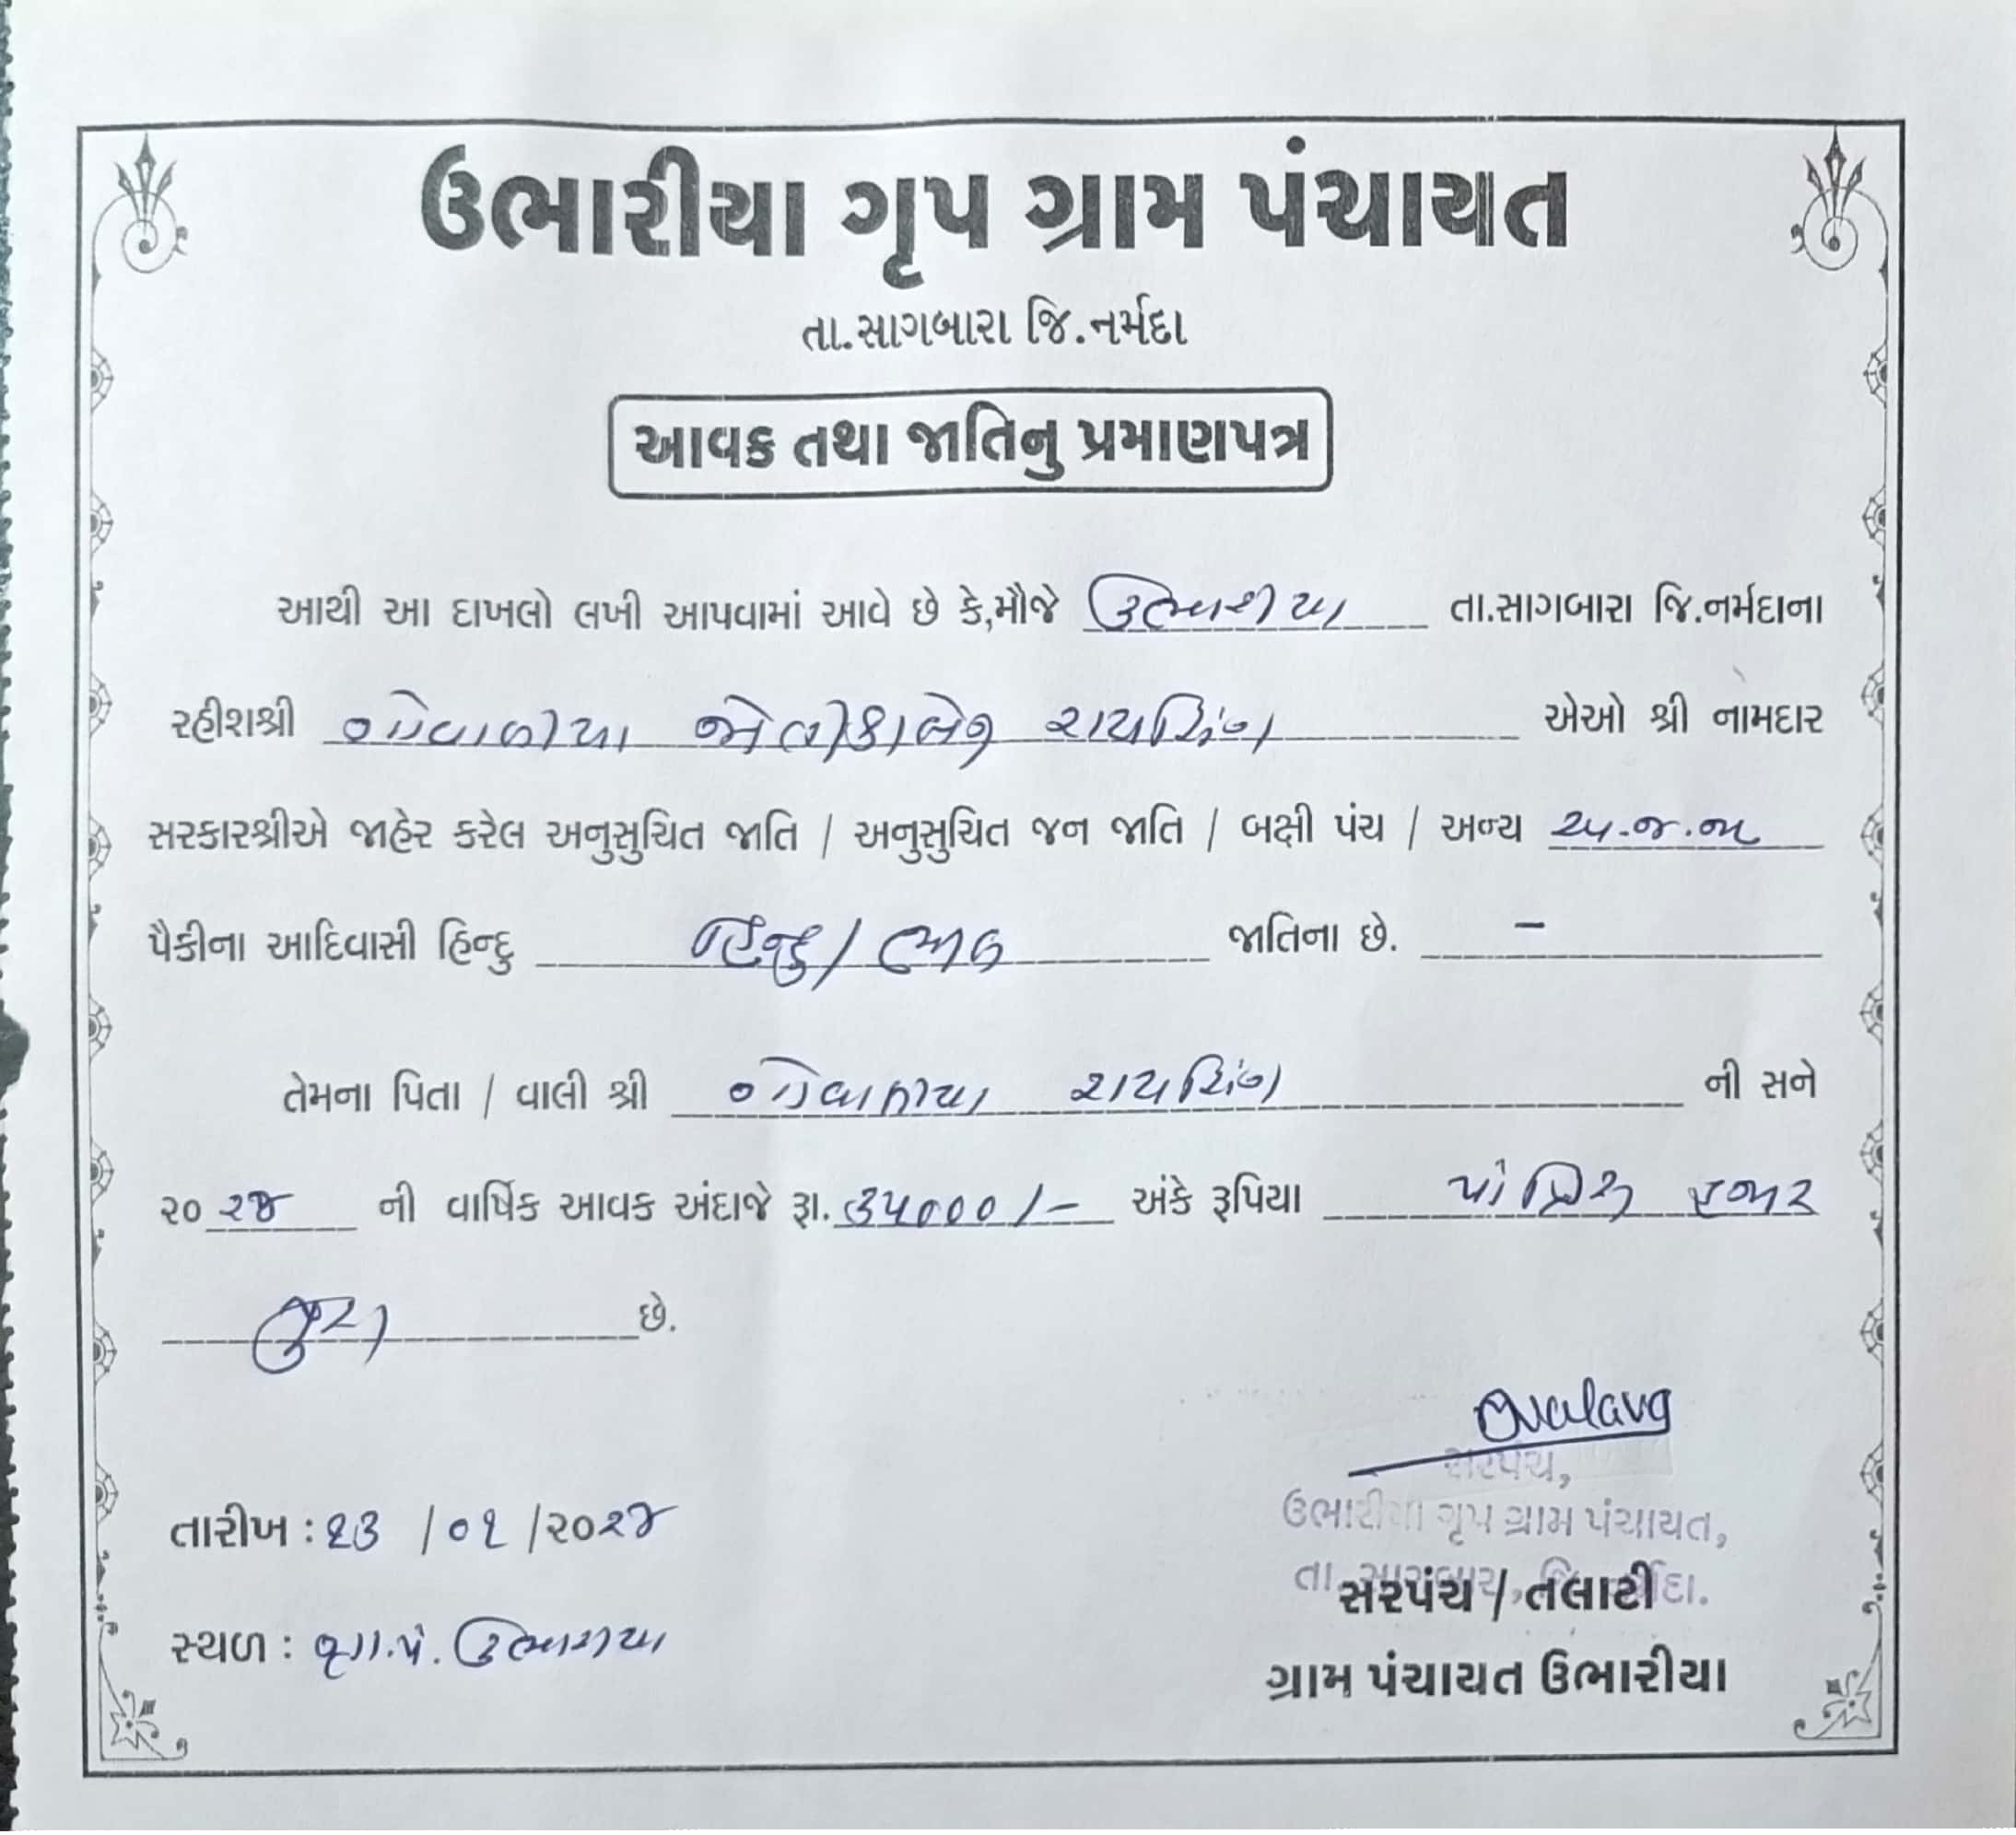 ઉભારીયા ગૃપ ગ્રામ પંચાયત
તા.સાગબારા જિ.નર્મદા
આવક તથા જાતિનુ પ્રમાણપત્ર
આથી આ દાખલો લખી આપવામાં આવે છે કે,મૌજે ઉભારીયા તા.સાગબારા જિ.નર્મદાના
રહીશશ્રી રાયસિંગ એઓ શ્રી નામદાર
સરકારશ્રીએ જાહેર કરેલ અનુસુચિત જાતિ / અનુસુચિત જન જાતિ / બક્ષી પંચ / અન્ય અ.જ.જા
પૈકીના આદિવાસી હિન્દુ હિન્દુ / ભીલ જાતિના છે. -
તેમના પિતા / વાલી શ્રી રાયસિંગ ની સને
૨૦૨૪ ની વાર્ષિક આવક અંદાજે રૂા. ૩૫૦૦૦/- અંકે રૂપિયા પાંત્રિસ હજાર
પુરા છે.
સરપંચ,
ઉભારીયા ગૃપ ગ્રામ પંચાયત,
તા.સાગબારા, જિ.નર્મદા.
તારીખ : ૨૩ /૦૧ /૨૦૨૪
સરપંચ / તલાટી
સ્થળ : ગ્રા.પં. ઉભારીયા
ગ્રામ પંચાયત ઉભારીયા